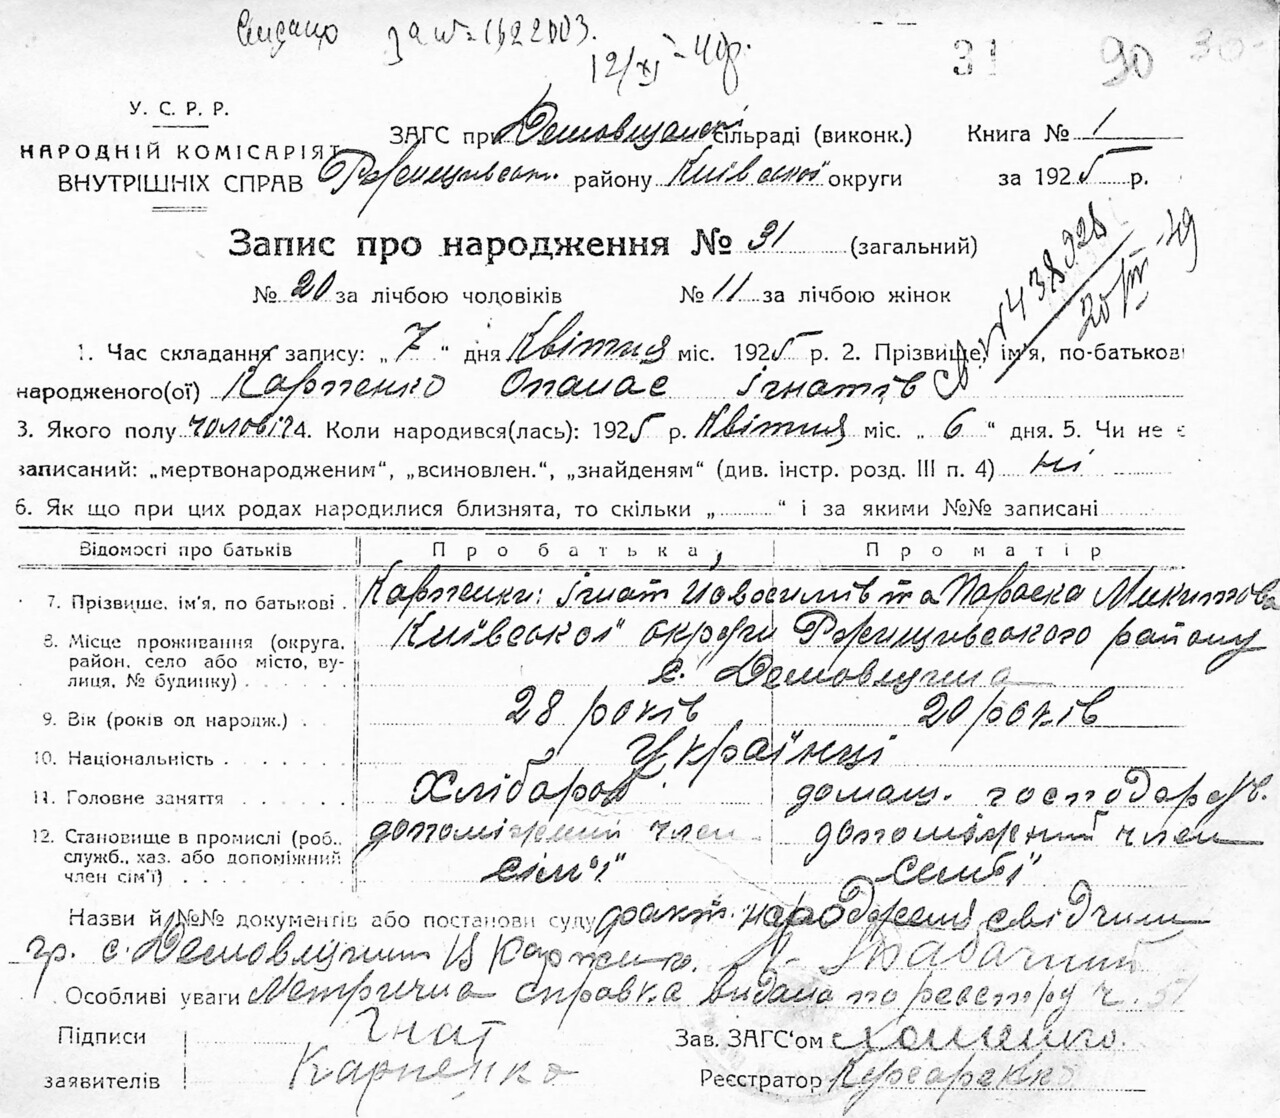 Видано за №
12/XI - 40р.
31 90 30
У. С. Р. Р.
НАРОДНІЙ КОМІСАРІЯТ
ВНУТРІШНІХ СПРАВ
ЗАГС при Демовщанскі сільраді (виконк.) Книга № 1
Ржищівськ. району Київської округи за 1925 р.
Запис про народження № 31 (загальний)
№ 20 за лічбою чоловіків № 11 за лічбою жінок
№ 438928
20/III - 49
1. Час складання запису: „ 7 “ дня Квітня міс. 1925 р. 2. Прізвище, ім'я, по-батькові
народженого(ої) Карпенко Опанас Ігнатів
3. Якого полу чоловіч 4. Коли народився(лась): 1925 р. Квітня міс. „ 6 “ дня. 5. Чи не є
записаний: „мертвонародженим“, „всиновлен.“, „знайденям“ (див. інстр. розд. III п. 4) ні
6. Як що при цих родах народилися близнята, то скільки „ “ і за якими №№ записані
Відомості про батьків Про батька Про матір
7. Прізвище, ім'я, по батькові . Карпенки: Ігнат Новосилів та Параска Микитова
8. Місце проживання (округа, район, село або місто, вулиця, № будинку) . Київської округи Ржищівського району
с. Демовщина
9. Вік (років од народж.) . 28 років 20 років
10. Національність . Українці
11. Головне заняття . Хлібороб домаш. господарв.
12. Становище в промислі (роб., служб., хаз. або допоміжний член сім'ї) . допоміжний член сім'ї допоміжний член семьї
Назви й №№ документів або постанови суду факт народженя свідчили
гр. с. Демовщини Табачний
Особливі уваги Метрична справка видана по реєстру ч. 51
Підписи заявителів Гнат Карпенко
Зав. ЗАГС'ом
Реєстратор